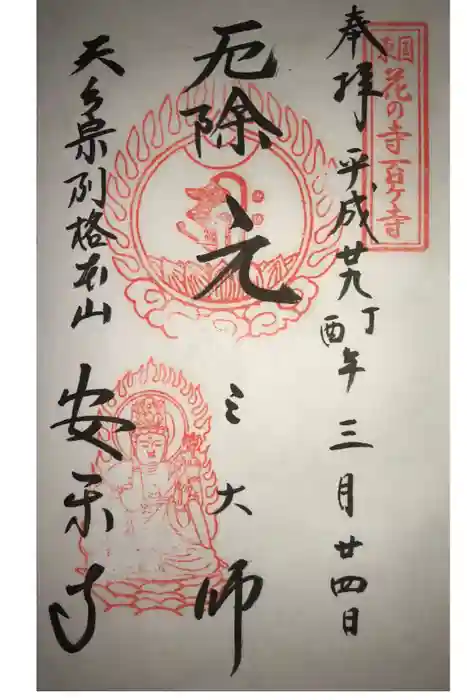 東国
花の寺百ヶ寺
奉拝 平成廿九丁酉年 三月廿四日
厄除 元三大師
天台宗別格本山 安楽寺